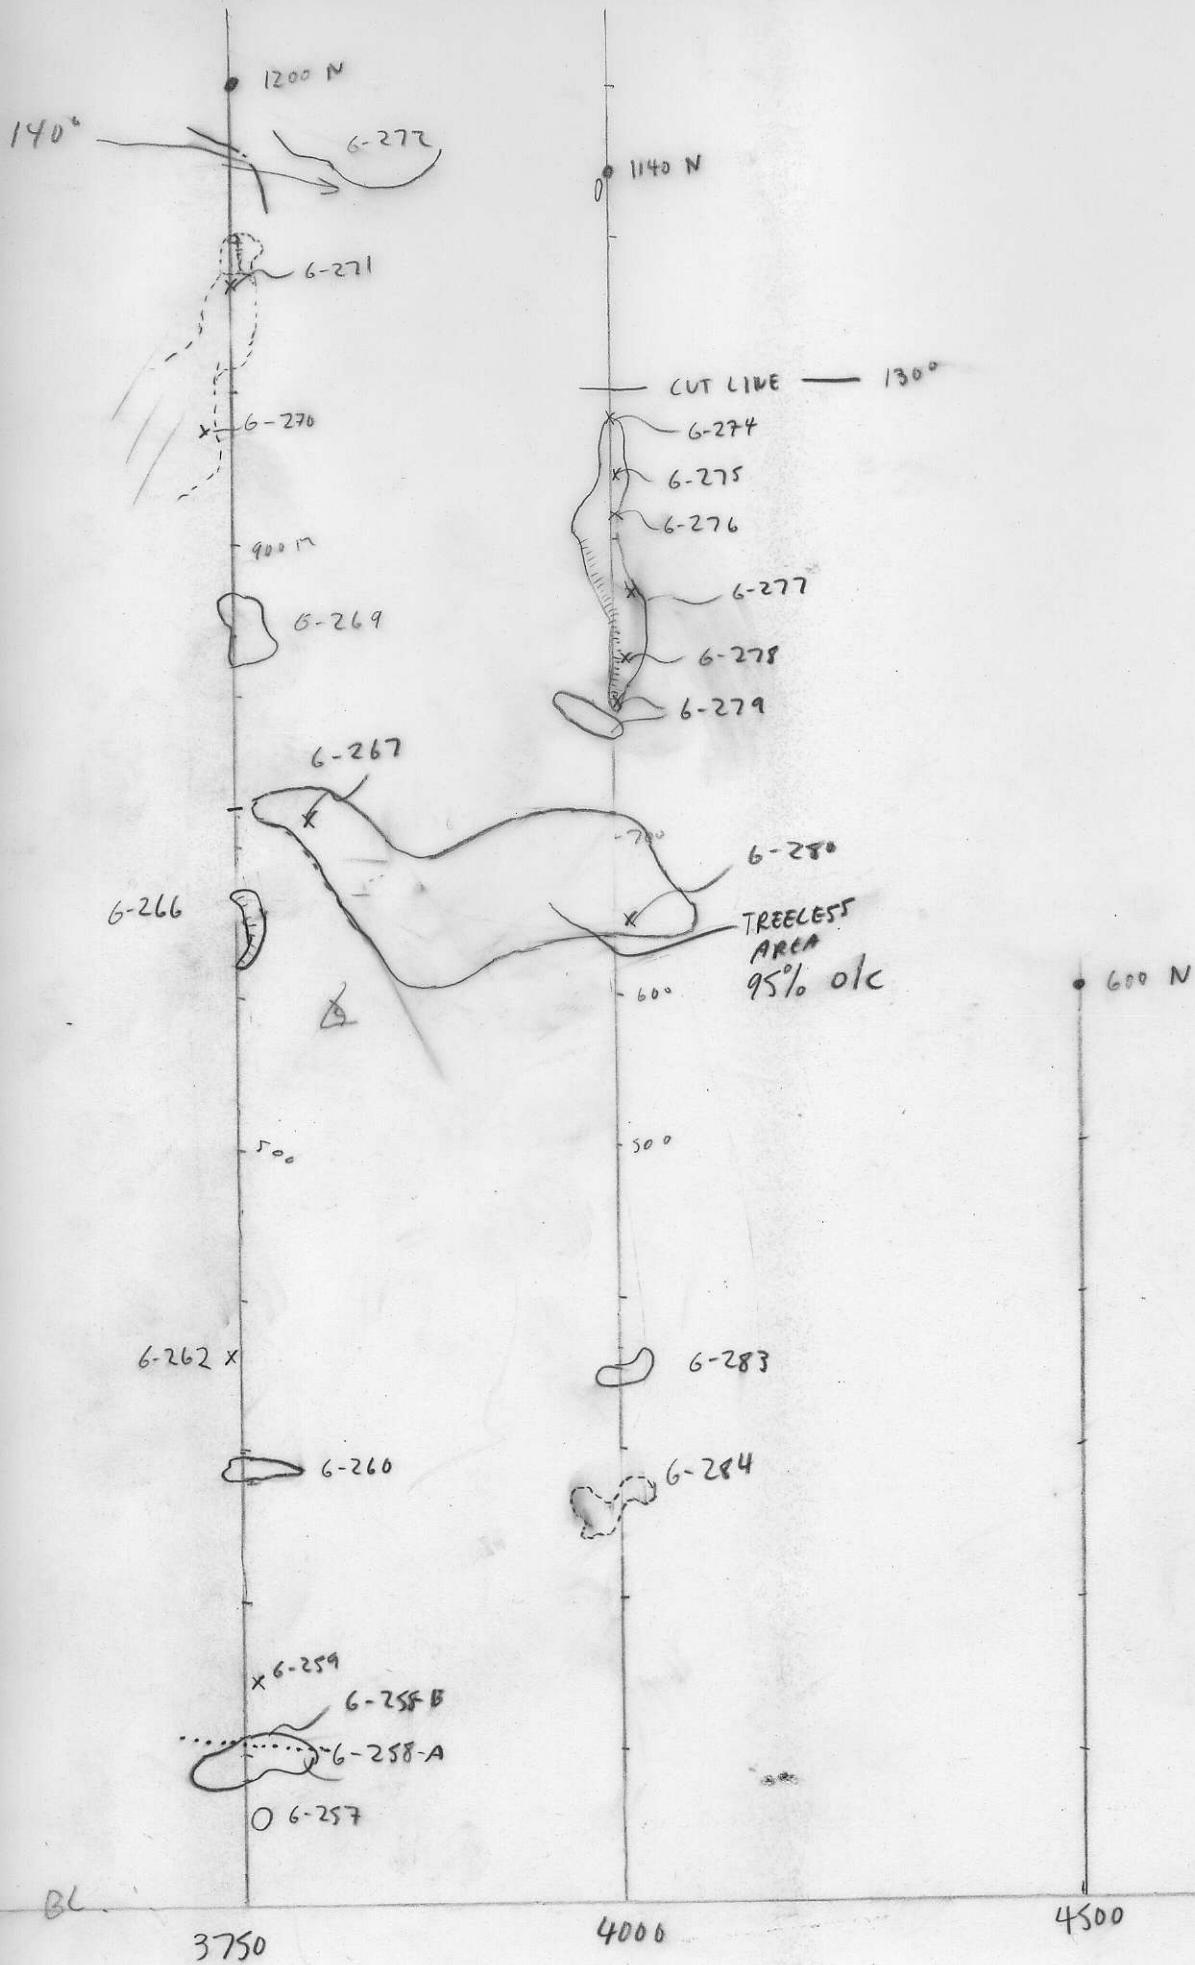 1200 N
140°
6-272
1140 N
6-271
CUT LINE — 130°
6-270
6-274
6-275
6-276
900 N
6-277
6-269
6-278
6-279
6-267
-700
6-280
6-266
TREELESS
AREA
95% o/c
600
600 N
500
500
6-262
6-283
6-260
6-284
6-259
6-258-B
6-258-A
6-257
BL
3750
4000
4500